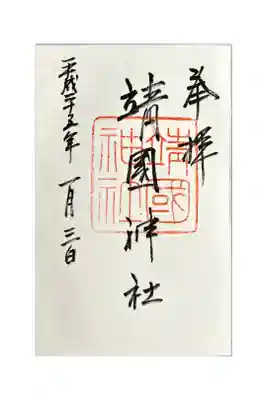 奉拝
靖國神社
靖國神社
平成二十五年 一月 三日